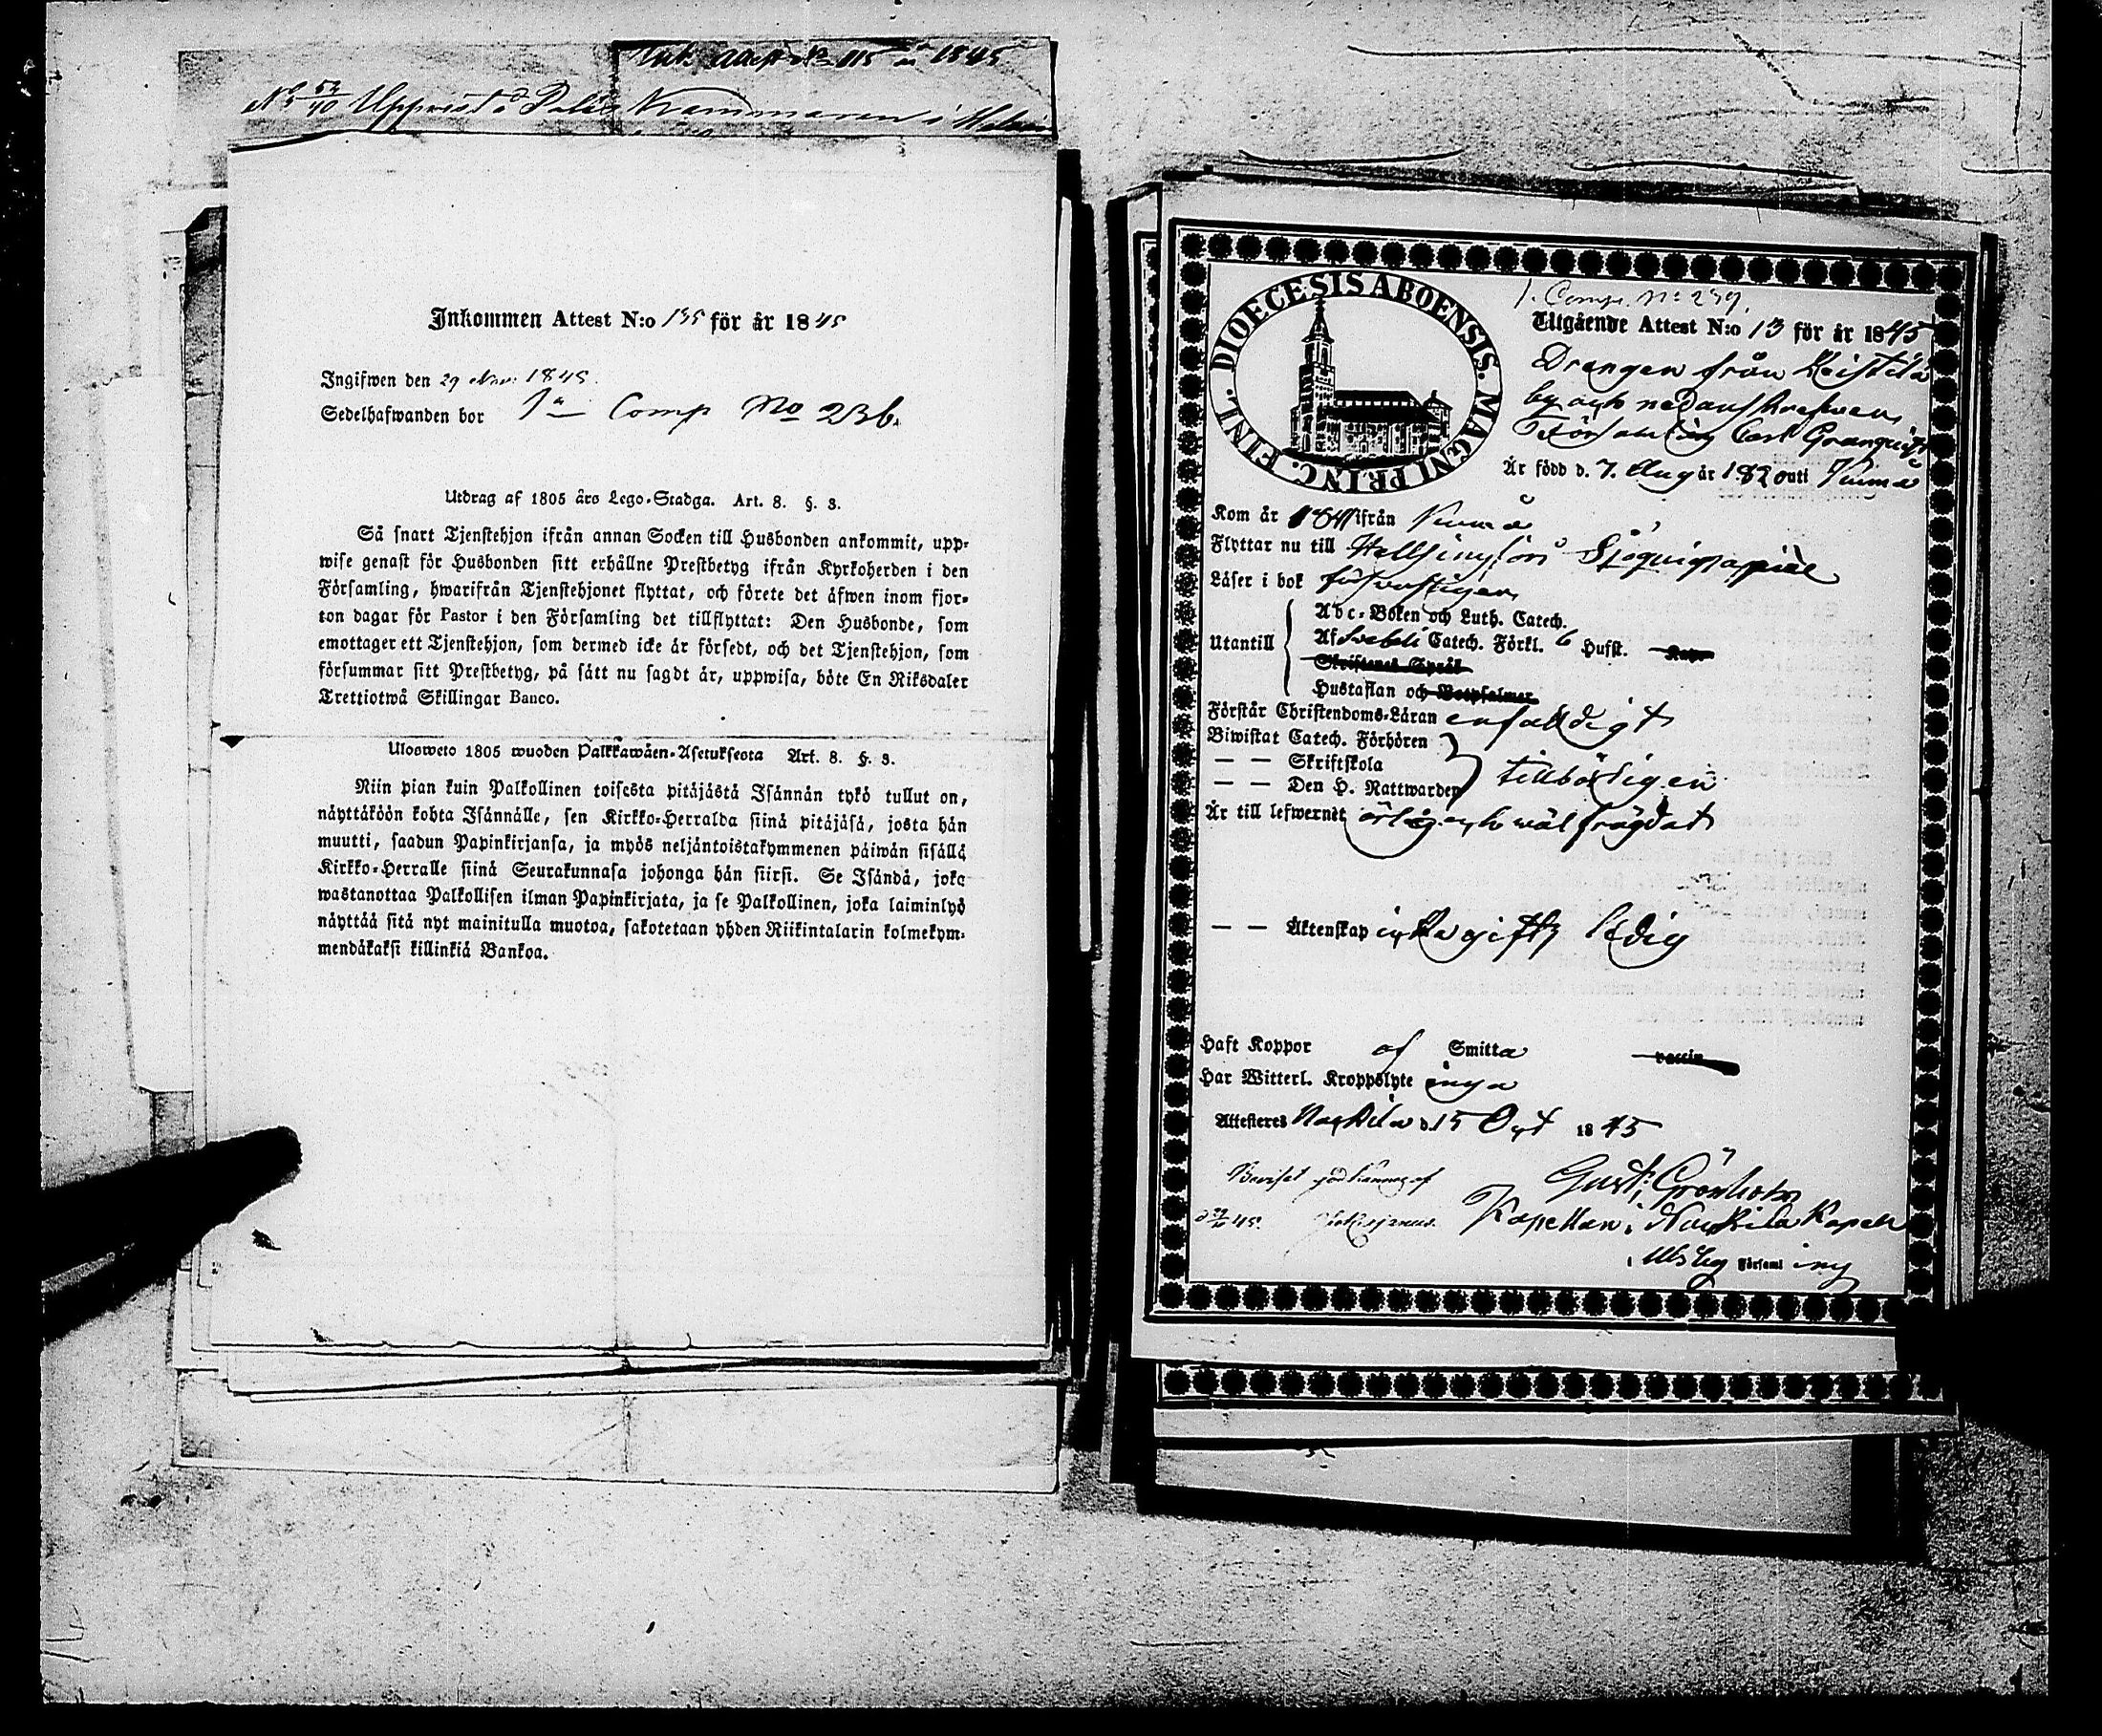 Ink. Attest No 115 år 1845
Uppvist å Polis Kammaren i
Inkommen Attest N:o 135 för år 1845
Ingifwen den 29 Nov: 1845.
Sedelhafwanden bor 1a Comp No 236.
Utdrag af 1805 års Lego-Stadga. Art. 8. §. 3.
Så snart Tjenstehjon ifrån annan Socken till Husbonden ankommit, upp-
wise genast för Husbonden sitt erhållne Prestbetyg ifrån Kyrkoherden i den
Församling, hwarifrån Tjenstehjonet flyttat, och förete det äfwen inom fjor-
ton dagar för Pastor i den Församling det tillflyttat: Den Husbonde, som
emottager ett Tjenstehjon, som dermed icke är försedt, och det Tjenstehjon, som
försummar sitt Prestbetyg, på sätt nu sagdt är, uppwisa, böte En Riksdaler
Trettiotwå Skillingar Banco.
Ulosweto 1805 wuoden Palkkawäen-Asetuksesta Art. 8. §. 3.
Niin pian kuin Palkollinen toisesta pitäjästä Isännän tykö tullut on,
näyttäköön kohta Isännälle, sen Kirkko-Herralda siinä pitäjäsä, josta hän
muutti, saadun Papinkirjansa, ja myös neljäntoistakymmenen päiwän sisällä
Kirkko-Herralle siinä Seurakunnasa johonga hän siirsi. Se Isändä, joka
wastanottaa Palkollisen ilman Papinkirjata, ja se Palkollinen, joka laiminlyö
näyttää sitä nyt mainitulla muotoa, sakotetaan yhden Riikintalarin kolmekym-
mendäkaksi killinkiä Bankoa.
DIOECESIS ABOENSIS. MAGNI PRINC. FINL.
1. Comp. No 239.
Utgående Attest N:o 13 för år 1845
Drengen från Keistilä
by och
Församling Carl Granquist
Är född d. 7. Aug år 1820 uti Kiimå
Kom år 1841 ifrån Kiimå
Flyttar nu till Hellsingfors Sjöquipaget
Läser i bok försvarligen
Utantill
Abc-Boken och Luth. Catech.
Af Svebeli Catech. Förkl. 6 Hufst. Kap.
Skriftenes Språk
Hustaflan och Botpsalmer
Förstår Christendoms-Läran enfaldigt
Biwistat Catech. Förhören
— — Skriftskola
— — Den H. Nattwarden
tillbörligen
Är till lefwernet ärlig och wäl frägdat
— — Äktenskap icke gift, ledig
Haft Koppor af Smitta vaccin
Har Witterl. Kroppslyte inga
Attesteres Nackila d. 15 Oct 1845
Beviset godkännes af
Gust: Grönholm
Kapellan i Nackila Kapell
i Ulfsby Församling